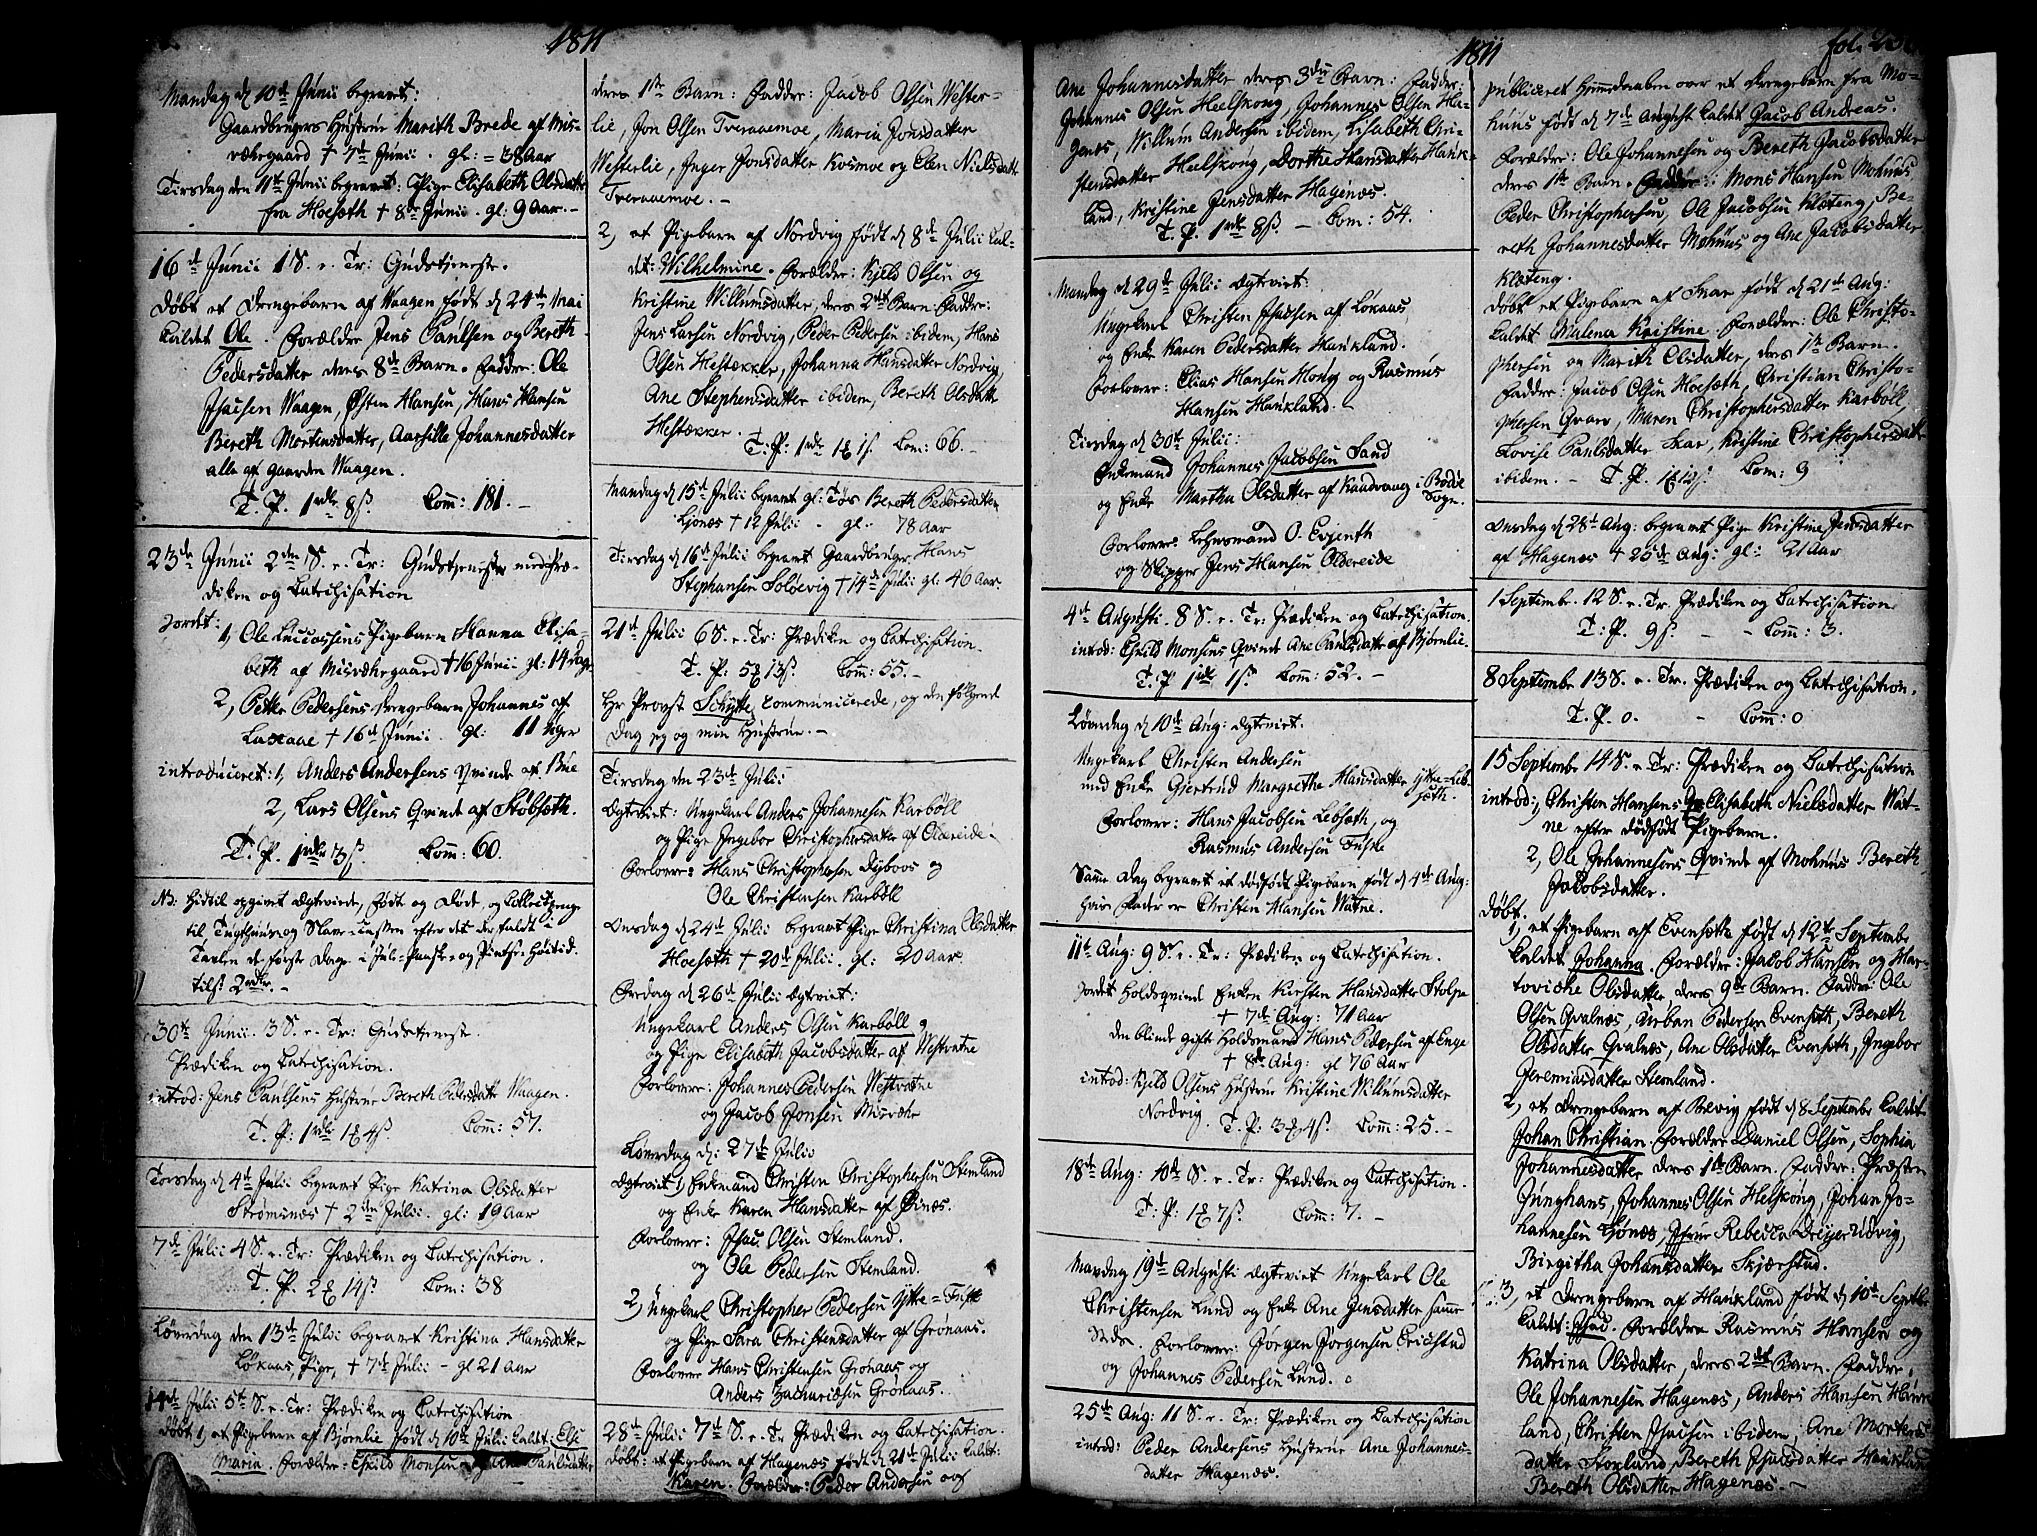 1811
Mandag d 10de Junii begravet:
Gaardbrugers Hustrue Marith Brede af Mis-
værgaard + 7de Junii. gl: = 38 Aar
Tirsdag den 11te Junii begravet: Pige Elisabeth Olsdatter
fra Hoesæth + 8de Junii. gl: 9 Aar.-
16de Junii 1 S. e. Tr: Gudstjeneste.
Døbt et Drengebarn af Waagen født d 24de Mai
kaldet Ole. Forældre Jens Paulsen og Bereth
Pedersdatter deres 8de Barn. Faddre: Ole
Isacsen Waagen, Østen Hansen, Hans Hansen
Bereth Mortensdatter, Aarsille Johannesdatter
alle af gaarden Waagen.
T. P. 1rdlr 8ß. Com: 181.-
23de Junii 2den S. e. Tr: Gudstjeneste med Præ-
diken og Catechisation
Jordet:
1, Ole Luccassens Pigebarn Hanna Elisa-
beth af Misværgaard + 16 Junii. gl: 14 Dage
2, Petter Pedersens Drengebarn Johannes af
Laxaae + 16de Junii. gl: 11 Uger
introduceret: 1, Anders Andersens Qvinde af Bue
2, Lars Olsens Qvinde af Støbsæth.
T. P. 1rdlr 3ß. Com: 60.
NB: Hidtil opgivet Ægteviede, Født og Døde, og Collectpenge
til Tugthuus og Slave-Cassen efter det der faldt i
Tavlen de første Dage i Jule-Paaske- og Pintse-Høitid.
tilß 2rdlr.-
30te Junii. 3 S. e. Tr: Gudstjeneste.
Prædiken og Catechisation.
introd: Jens Paulsens Hustrue Bereth Pedersdatter Waagen.
T. P: 1rdlr 1 4ß. Com: 57.
Torsdag d 4de Julii begravet Pige Katrina Olsdatter
Strømsnæs + 2den Julii. gl: 19 Aar
7de Julii 4 S. e. Tr: Prædiken og Catechisation.
T. P. 2 14ß Com: 38
Løverdag den 13de Julii begravet Kristina Hansdatter
Løkaas, Pige, + 7de Julii - gl 21 Aar
14de Julii 5te S. e. Tr: Prædiken og Catechisation
døbt 1, et Pigebarn af Bjørnlie født d 10de Julii kaldet: Else
Maria. Forældre: Eskild Monsen og Ane Paulsdatter
deres 1ste Barn: Faddre: Jacob Olsen Wester-
lie, Jon Olsen Tveraaemoe, Maria Jonsdatter
Westerlie, Inger Jonsdatter Kosmoe og Elen Nielsdatter
Tveraaemoe.-
2, et Pigebarn af Nordvig født d 8de Julii kal-
det: Wilhelmine. Forældre: Kield Olsen og
Kristine Willumsdatter, deres 2det Barn: Faddre:
Jens Larsen Nordvig, Peder Pedersen ibidem, Hans
Olsen Hestækker, Johanna Hansdatter Nordvig,
Ane Stephensdatter ibidem, Bereth Olsdatter
Hestækker.
T: P: 1rdlr 1 1ß. Com: 66.-
Mandag d 15de Julii begravet gl: Tøs Bereth Pedersdatter
Ljønæs + 12 Julii - gl: 78 Aar
Tirsdag d 16de Julii begravet Gaardbruger Hans
Stephansen Soløevig + 14de Julii gl: 46 Aar.
21de Julii 6 S. e. Tr: Prædiken og Catechisation.
T. P: 5 13ß. Com: 55.-
Hr Provst Schytte communicerede, og den følgende
Dag jeg og min Hustrue.-
Tirsdag den 23de Julii
Ægteviet: Ungekarl Anders Johannesen Karbøll
og Pige Ingebor Christophersdatter af Oldereide.
Forlover: Hans Christophersen Dybvos og
Ole Christensen Karbøll
Onsdag d 24de Julii begravet Pige Christina Olsdatter
Hoesæth + 20de Julii. gl: 20 Aar
Fredag d 26de Julii ægteviet:
Ungekarl Anders Olsen Karbøll
og Pige Elisabeth Jacobsdatter af Westvatne
Forlovere: Johannes Pedersen Westvatne
og Jacob Jonsen Misvær
Løverdag d: 27de Julii
Ægteviet 1, Enkemand Christen Christophersen Stemland
og Enke Karen Hansdatter af Finæs.
Forlovere: Isac Olsen Stemland.
og Ole Pedersen Stemland.
2, Ungekarl Christopher Pedersen Ytre-Fuske
og Pige Sara Christensdatter af Grønaas.
Forlovere Hans Christensen Grønaas og
Anders Zachariæsen Grønaas.
28de Julii 7de S. e. Tr Prædiken og Catechisation.
døbt: et Pigebarn af Hagenæs født d 21de Julii kaldet:
Karen. Forældre: Peder Andersen og
1811
Ane Johannesdatter deres 3die Barn: Faddre:
Johannes Olsen Heelskong, Johannes Olsen Ha-
genæs, Willum Andersen ibidem, Lisabeth Chri-
stensdatter Heelskong, Dorthe Hansdatter Hauk-
land, Kristine Jensdatter Hagenæs.
T. P. 1rdlr 8ß. - Com: 54.
Mandag d 29de Julii ægteviet:
Ungekarl Christen Isacsen af Løkaas
og Enke Karen Pedersdatter Haukland.
Forlovere: Elias Hansen Hong og Rasmus
Hansen Haukland.
Tirsdag d 30te Julii:
Enkemand Johannes Jacobsen Sand
og Enke Martha Olsdatter af Kaadvaag i Bodøe
Sogn.
Forlovere: Lehnsmand O. Evjenth
og Skipper Jens Hansen Oldereide
4de Augusti. 8 S. e. Tr: Prædiken og Catechisation.
introd: Eskild Monsens Qvinde Ane Paulsdatter af Bjørnlie.
T. P 1rdlr 1ß. Com: 52.-
Løverdag d 10de Aug: ægteviet:
Ungekarl Christen Andersen
med Enke Gjertrud Margrethe Hansdatter Ytre-Leb-
sæth.
Forlovere: Hans Jacobsen Lebsæth, og
Rasmus Andersen Fuske
Samme Dag begravet et dødfødt Pigebarn født d 4de Aug:
hvis Fader er Christen Hansen Watne.
11te Aug: 9 S. e. Tr: Prædiken og Catechisation.
Jordet Holdsqvinde Enken Kirsten Hansdatter Stolpe
+ 7de Aug: 71 Aar
den blinde gifte Holdsmand Hans Pedersen af Enge
+ 8de Aug: gl 76 Aar
introd: Kjeld Olsens Hustrue Kristine Willumsdatter
Nordvig. T. P: 3 4ß. Com: 25.-
18de Aug: 10de S. e. Tr: Prædiken og Catechisation.
T: P: 1 7ß. Com: 7.-
Mandag 19de Augusti ægteviet Ungekarl Ole
Christensen Lund og Enke Ane Jensdatter samme
Steds. Forlovere: Jørgen Jørgensen Erichstad
og Johannes Pedersen Lund.
25de Aug: 11 S. e. Tr: Prædiken og Catechisation
introd: Peder Andersens Hustrue Ane Johannes-
datter Hagenæs.
fol. 230
publiceret Hiemmedaaben over et Drengebarn fra Mo-
huus født d 7de August kaldet Jacob Andreas.
Forældre: Ole Johannesen og Bereth Jacobsdatter
deres 1ste Barn. Faddre: Mons Hansen Mohuus
Peder Christophersen, Ole Jacobsen Klæteng, Be-
reth Johannesdatter Mohuus og Ane Jacobsdatter
Klæteng.
Døbt et Pigebarn af Skar født d 21de Aug:
kaldet Malena Kristine. Forældre: Ole Christo-
phersen og Marith Olsdatter, deres 1ste Barn.
Faddre: Jacob Olsen Hoesæth, Christian Christo-
phersen Qvarv, Maren Christophersdatter Karbøll,
Lovise Paulsdatter Skar, Kristine Christophersdatter
ibidem.- T. P. 1 12ß. Com: 9
Onsdag d 28de Aug: begravet Pige Kristine Jensdatter
af Hagenæs + 25de Aug: gl: 21 Aar
1 Septembr. 12 S. e. Tr. Prædiken og Catechisation
T: P. 9ß. - - Com: 3.
8 Septembr 13 S. e. Tr. Prædiken og Catechisation.
T. P. 0. - Com: 0
15 Septembr 14 S. e. Tr: Prædiken og Catechisation
introd: 1, Christen Hansens Q Elisabeth Nielsdatter Wat-
ne efter dødfødt Pigebarn.
2, Ole Johannesens Qvinde af Mohuus Bereth
Jacobsdatter.
Døbt.
1, et Pigebarn af Evensæth født d 12te Septembr
kaldet Johanna. Forældre: Jacob Hansen og Har-
toviche Olsdatter deres 9de Barn. Faddre Ole
Olsen Qvalnæs, Urban Pedersen Evensæth, Bereth
Olsdatter Qvalnæs, Ane Olsdatter Evensæth, Ingebor
Jeremiasdatter Stemland.
2, et Drengebarn af Bevig født d 8 Septembr kaldet
Johan Christian Forældre Daniel Olsen, Sophia
Johannesdatter deres 1ste Barn. Faddre: Præsten
Junghans, Johannes Olsen Helskong, Johan Jo-
hannesen Ljønæs, Jfrue Rebecca Dreyer Udvig,
Birgitha Johansdatter Skjærstad.
3, et Drengebarn af Haukland født d 10de Septbr
kaldet: Isac. Forældre Rasmus Hansen og
Katrina Olsdatter, deres 2det Barn. Faddre.
Ole Johannesen Hagenæs, Anders Hansen Hauk-
land, Christen Isacsen ibidem, Ane Mortens-
datter Storlund, Bereth Isacsdatter Haukland
Bereth Olsdatter Hagenæs.-